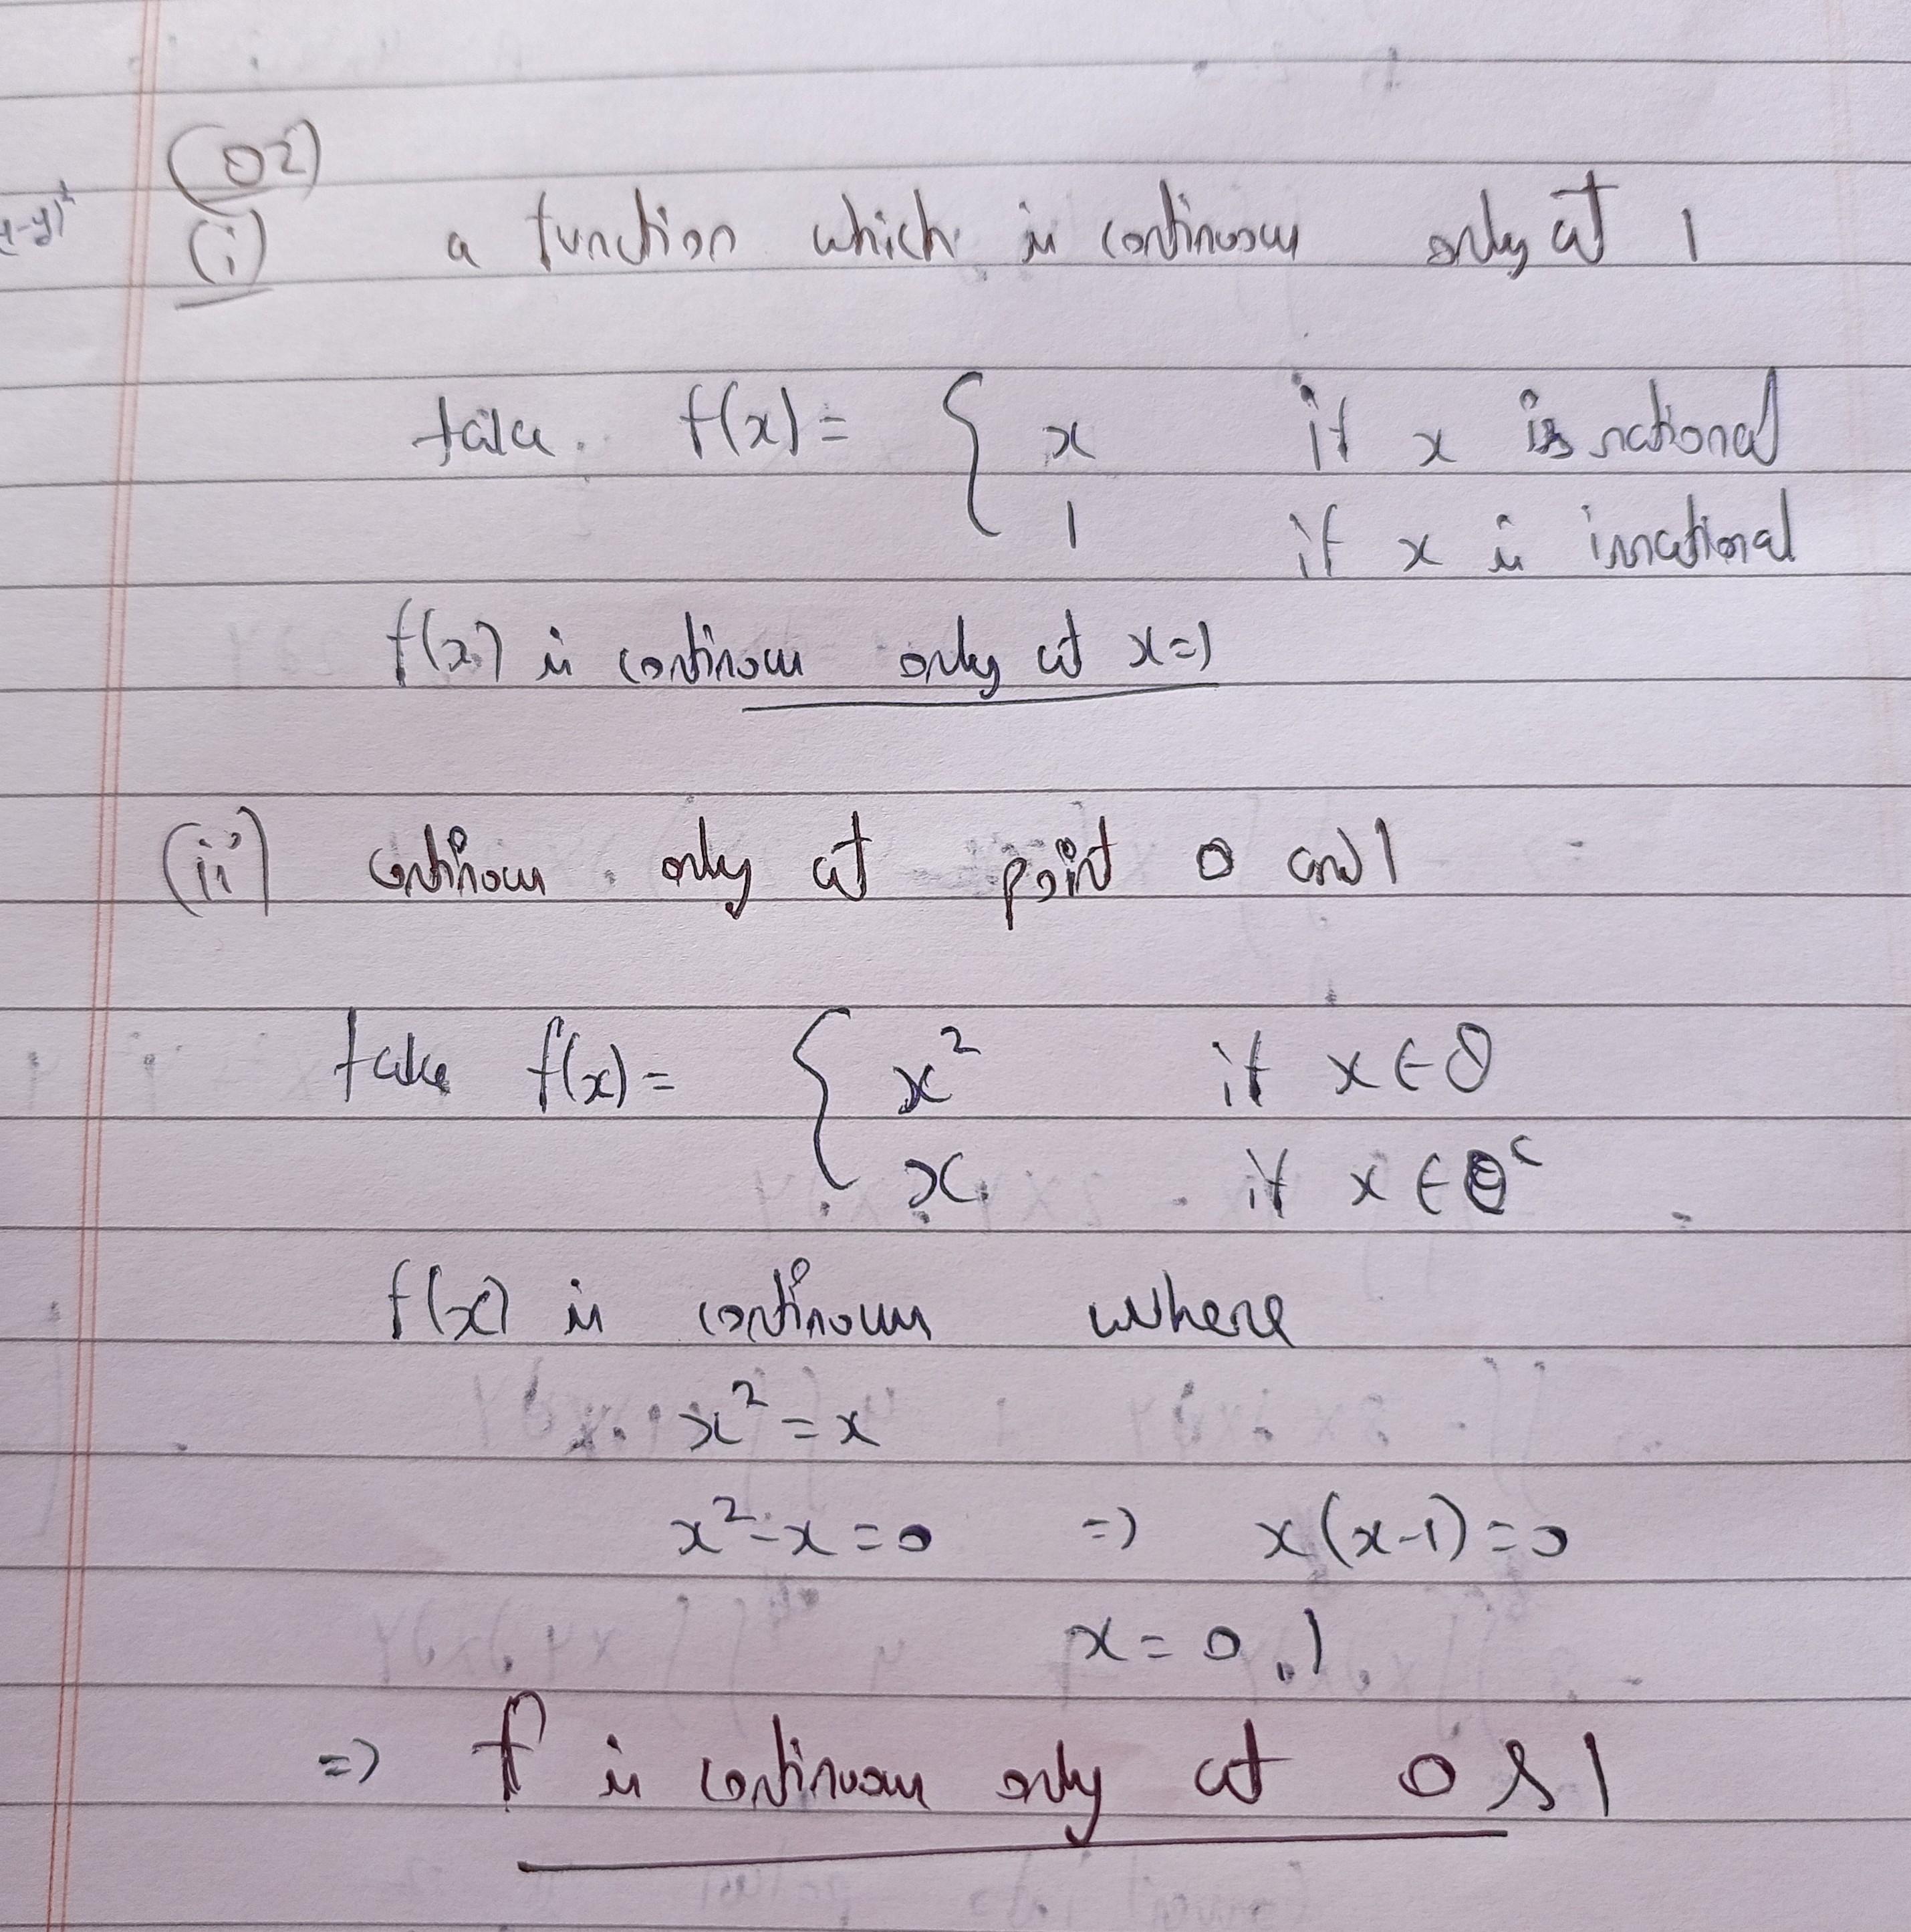 (02)
(i) a function which is continuous only at 1
take f(x) = { x if x is rational
1 if x is irrational
f(x) is continous only at x=1
(ii) continous only at point 0 and 1
take f(x) = { x² if x ∈ Q
x if x ∈ Qᶜ
f(x) is continous where
x² = x
x² - x = 0 => x(x-1) = 0
x = 0, 1
=> f is continuous only at 0 & 1